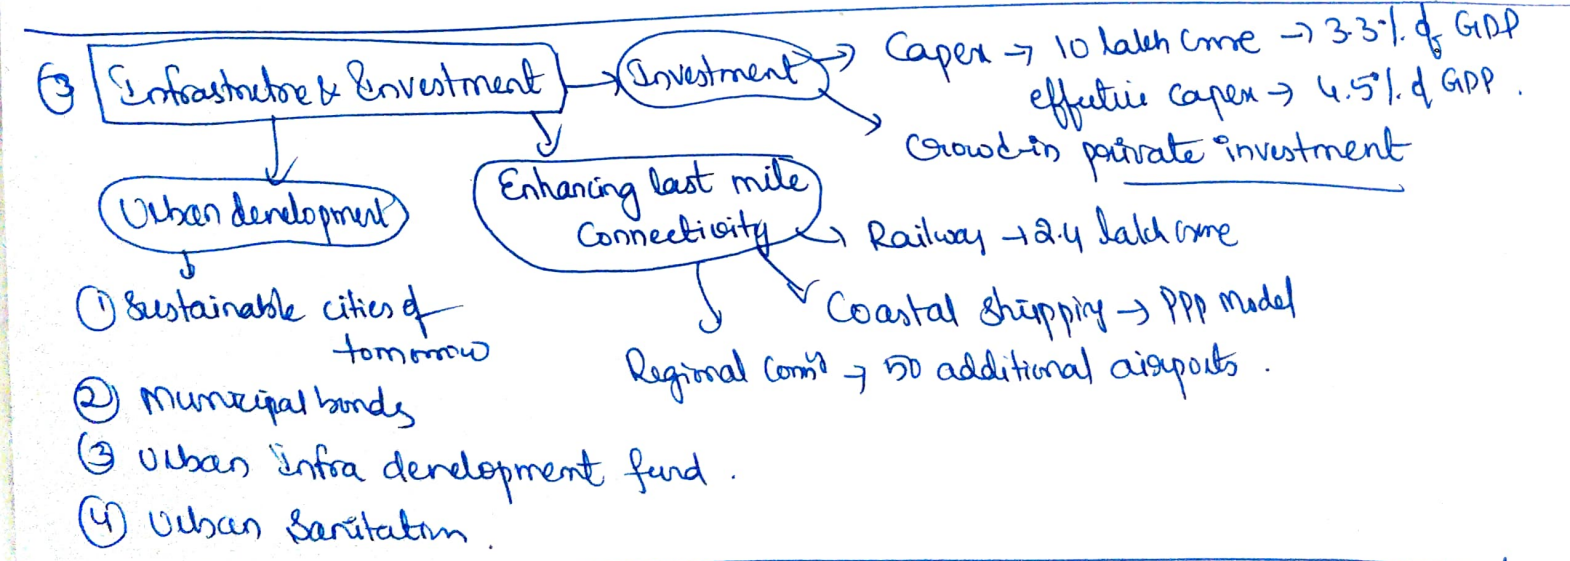 ③ Infrastructure & Investment → Investment → Capex → 10 lakh crore → 3.3% of GDP
effective capex → 4.5% of GDP.
Crowd-in private investment
Urban development
Enhancing last mile
Connectivity → Railway → 2.4 lakh crore
Coastal shipping → PPP model
Regional conn → 50 additional airports.
① Sustainable cities of
tomorrow
② Municipal bonds
③ Urban infra development fund.
④ Urban Sanitation.